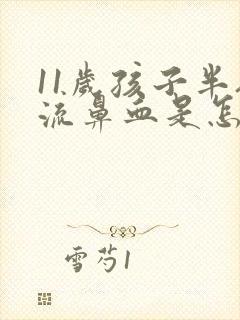 11岁孩子半
流鼻血是怎
雪芍1